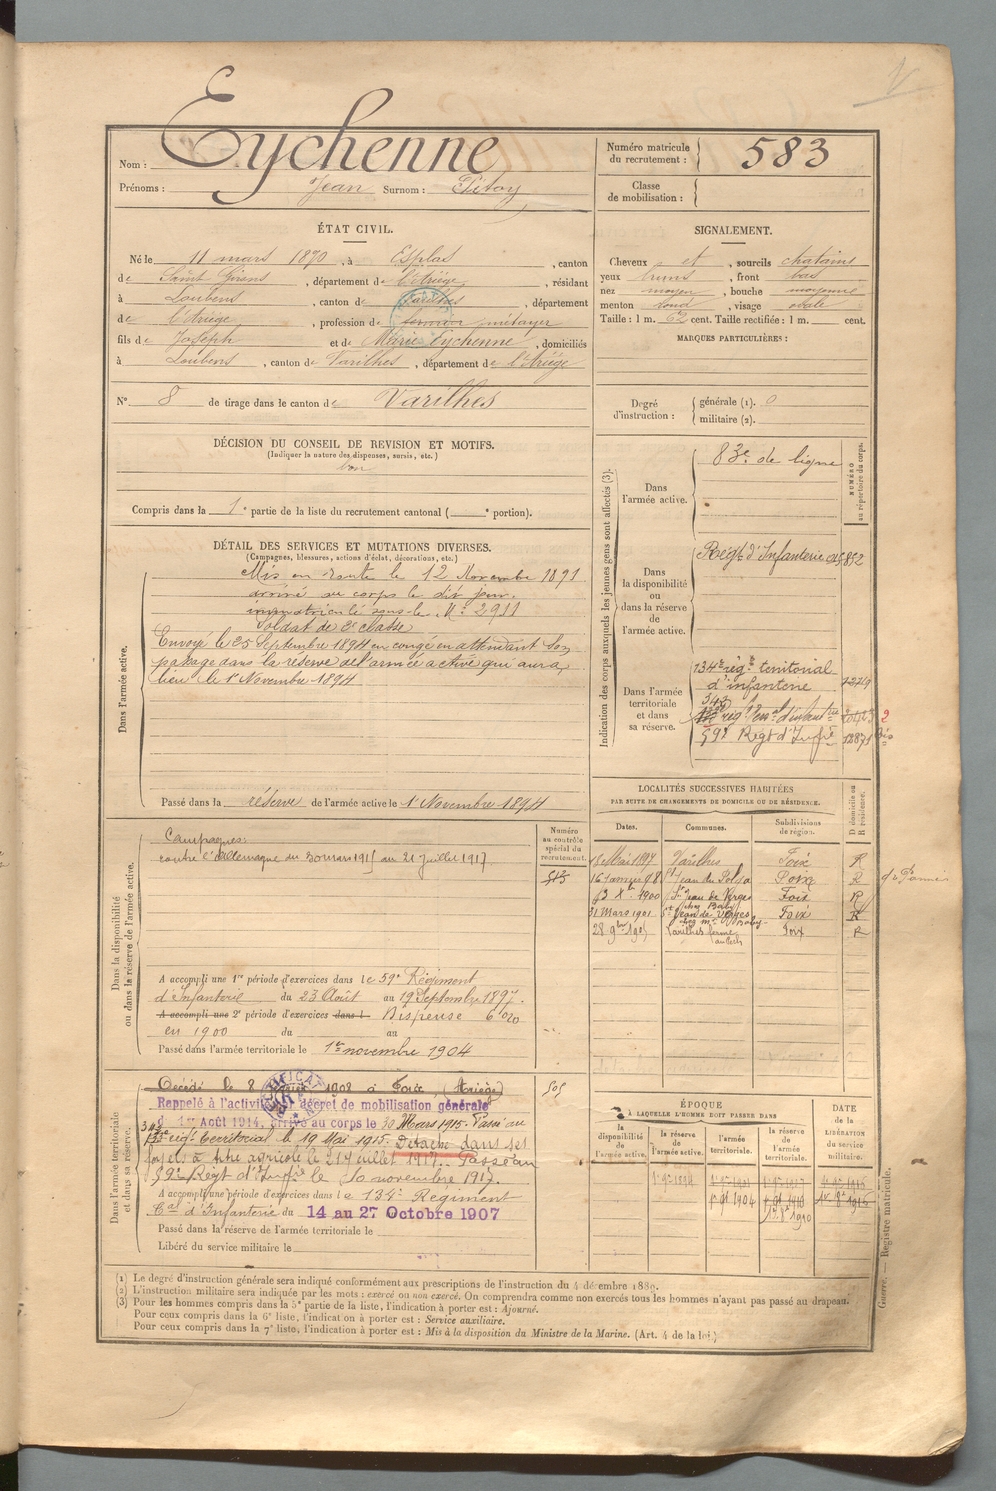 Nom : Eychenne
Prénoms : Jean Surnom : Pitoy
Numéro matricule du recrutement : 583
Classe de mobilisation :
ÉTAT CIVIL.
Né le 11 mars 1870, à Esplas, canton
de Saint Girons, département de l'Ariège, résidant
à Loubens, canton de Varilhes, département
de l'Ariège, profession de fermier métayer
fils de Joseph et de Marie Eychenne, domiciliés
à Loubens, canton de Varilhes, département de l'Ariège
N° 8 de tirage dans le canton de Varilhes
SIGNALEMENT.
Cheveux et, sourcils chatains
yeux bruns, front bas
nez moyen, bouche moyenne
menton rond, visage ovale
Taille : 1 m. 62 cent. Taille rectifiée : 1 m. cent.
MARQUES PARTICULIÈRES :
Degré d'instruction : générale (1). 0
militaire (2).
DÉCISION DU CONSEIL DE REVISION ET MOTIFS.
(Indiquer la nature des dispenses, sursis, etc.)
bon
Compris dans la 1e partie de la liste du recrutement cantonal ( e portion).
DÉTAIL DES SERVICES ET MUTATIONS DIVERSES.
(Campagnes, blessures, actions d'éclat, décorations, etc.)
Dans l'armée active.
Mis en route le 12 Novembre 1891
arrivé au corps le dit jour.
immatriculé sous le N° 2911
Soldat de 2e classe
Envoyé le 25 Septembre 1894 en congé en attendant son
passage dans la réserve de l'armée active qui aura
lieu le 1er Novembre 1894
Passé dans la réserve de l'armée active le 1er Novembre 1894
Indication des corps auxquels les jeunes gens sont affectés (3).
NUMÉRO au répertoire du corps.
Dans l'armée active.
83e de ligne
Dans la disponibilité ou dans la réserve de l'armée active.
Régt d'Infanterie
Dans l'armée territoriale et dans sa réserve.
134e régt territorial
d'infanterie
343
59e Régt d'Infie
LOCALITÉS SUCCESSIVES HABITÉES
PAR SUITE DE CHANGEMENTS DE DOMICILE OU DE RÉSIDENCE.
Dates. Communes. Subdivisions de région. D domicile ou R résidence.
Mai 1897 Varilhes Foix R
St Jean du Falga Foix R
1900 St Jean de Verges Foix R
31 Mars 1901 St Jean de Verges Foix R
28 9bre 1905 Varilhes ferme Foix R
Dans la disponibilité ou dans la réserve de l'armée active.
Numéro au contrôle spécial du recrutement.
Campagnes:
contre l'Allemagne du 30 mars 1915 au 21 Juillet 1917.
A accompli une 1re période d'exercices dans le 59e Régiment
d'Infanterie du 23 Août au 19 Septembre 1897.
A accompli une 2e période d'exercices dans l Dispense
en 1900 du au
Passé dans l'armée territoriale le 1er novembre 1904
Dans l'armée territoriale et dans sa réserve.
Décédé le 8 1908 à Foix, (Ariège)
505
Rappelé à l'activité décret de mobilisation générale
1er Août 1914, arrivé au corps le 30 Mars 1915. Passé au
343
rég. territorial le 19 Mai 1915. Détaché dans ses
foyers à titre agricole le 21 Juillet 1917. Passé au
59e Régt d'Infie le 10 novembre 1917.
A accompli une période d'exercices dans le 134e Régiment
tal d'Infanterie du 14 au 27 Octobre 1907
Passé dans la réserve de l'armée territoriale le
Libéré du service militaire le
ÉPOQUE
A LAQUELLE L'HOMME DOIT PASSER DANS
la disponibilité de l'armée active.
la réserve de l'armée active.
l'armée territoriale.
la réserve de l'armée territoriale.
DATE de la LIBÉRATION du service militaire.
Guerre. — Registre matricule.
(1) Le degré d'instruction générale sera indiqué conformément aux prescriptions de l'instruction du 4 décembre 1889.
(2) L'instruction militaire sera indiquée par les mots : exercé ou non exercé. On comprendra comme non exercés tous les hommes n'ayant pas passé au drapeau.
(3) Pour les hommes compris dans la 5e partie de la liste, l'indication à porter est : Ajourné.
Pour ceux compris dans la 6e liste, l'indication à porter est : Service auxiliaire.
Pour ceux compris dans la 7e liste, l'indication à porter est : Mis à la disposition du Ministre de la Marine. (Art. 4 de la loi.)